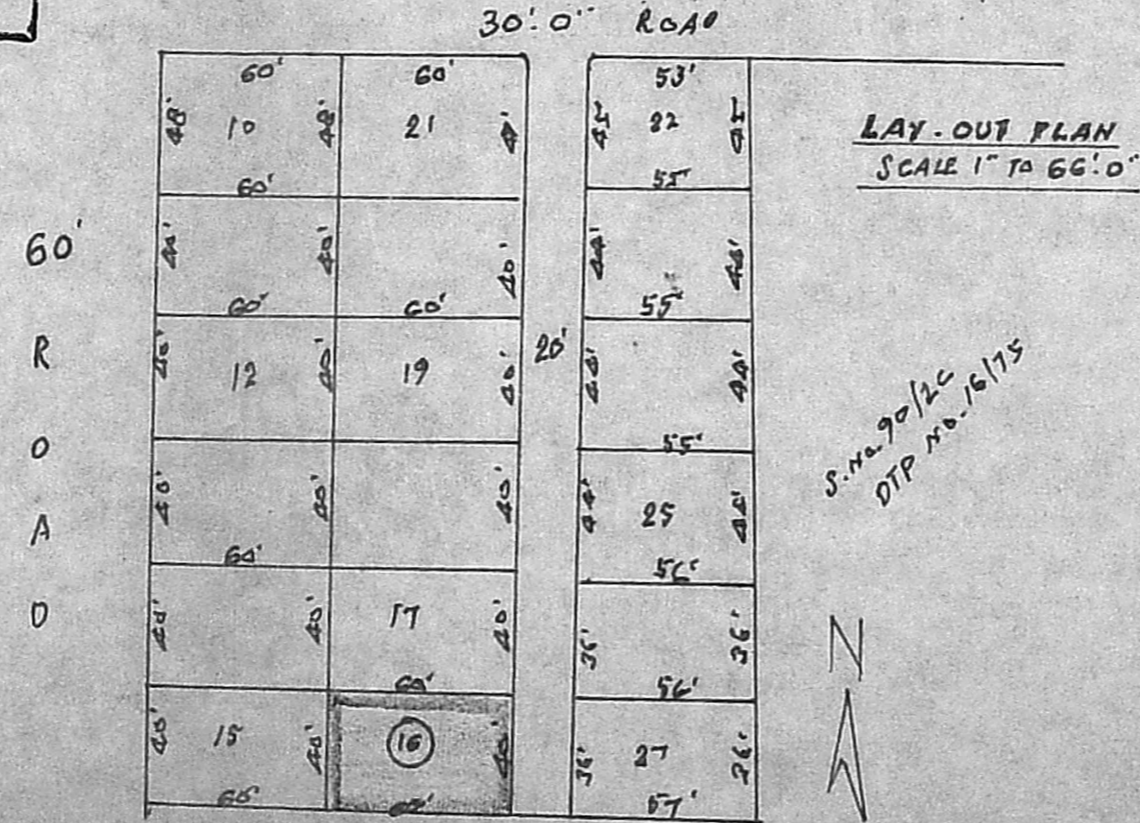 30'.0" ROAD
LAY-OUT PLAN
SCALE 1" TO 66'.0"
60' ROAD
60' 60' 53'
48' 10 48' 21 45' 22 45'
60' 55'
40' 40' 40' 44' 44'
60' 60' 55'
40' 12 40' 19 40' 20' 44' 44'
55'
40' 40' 40' 44' 25 44'
60' 56'
40' 40' 17 40' 36' 36'
60' 56'
40' 15 40' 16 40' 36' 27 36'
60' 57'
S.No. 90/2C
DTP No. 16/75
N